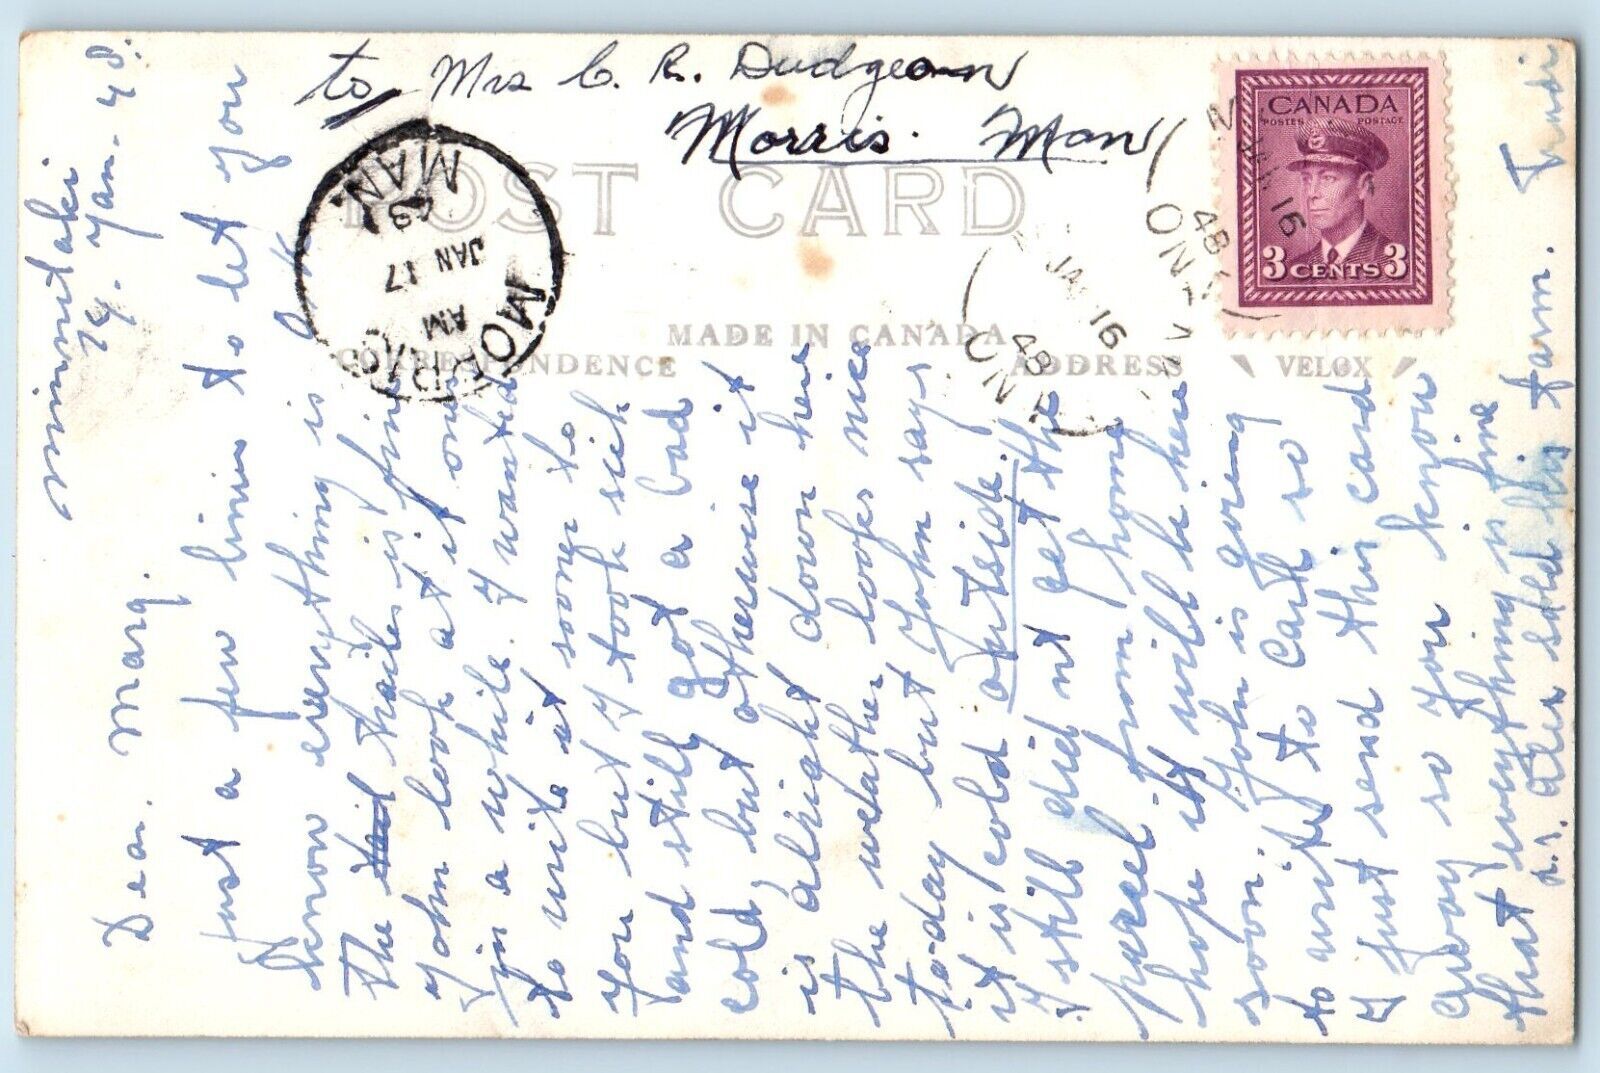 to Mrs C. R. Dudgeon
Morris. Man
POST CARD
MADE IN CANADA
CORRESPONDENCE
ADDRESS
VELOX
CANADA
POSTES POSTAGE
3 CENTS 3
MORRIS
AM
JAN 17
48
MAN.
JAN 16
48
ONT
JAN 16
48
ONT
minnitaki
14. Jan. 48.
Dear. Marg.
Just a few lines to let you
know everything is O.K.
the trailer is fine
John look at it ones
in a while. I wanted
to write it sooner to
you but I took sick
and still got a bad
cold, but otherwise it
is alright down here
the weather looks nice
to-day but John says
it is cold outside.
I still did nt get the
parcel from home
hope it will be here
soon. John is going
to write to Carl so
I just send this card
away so you know
that everything is fine
Alex sold his farm. Trudi